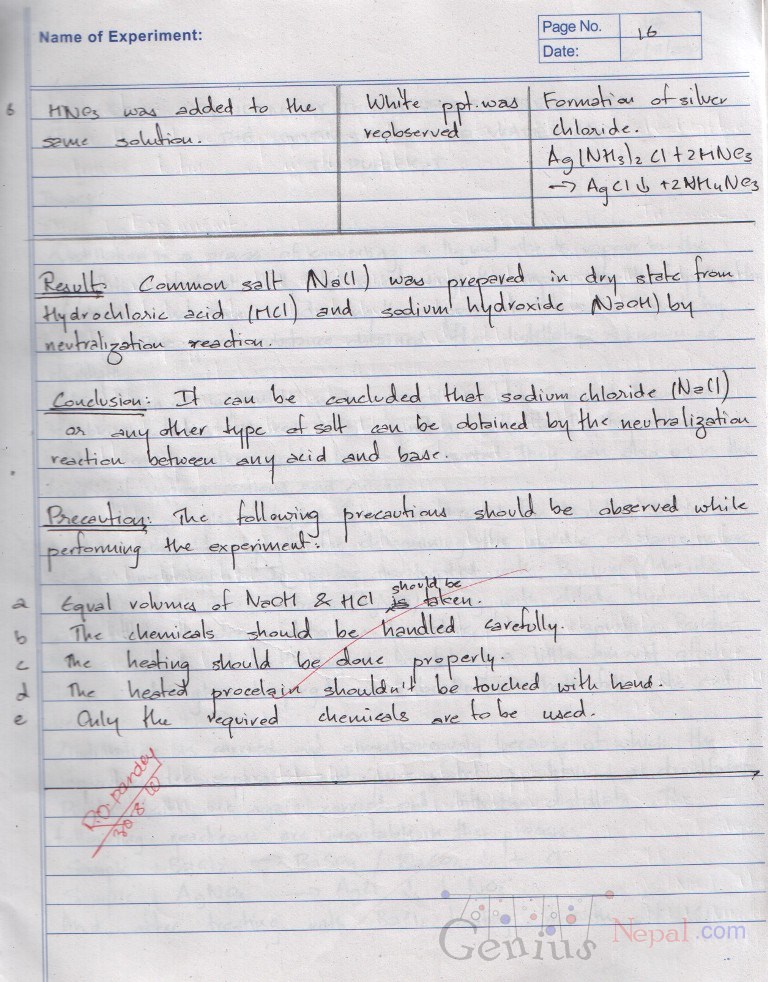 Name of Experiment:
Page No. 16
Date:
6 HNO3 was added to the same solution.
White ppt. was reobserved
Formation of silver chloride.
Ag(NH3)2 Cl + 2HNO3
→ AgCl ↓ + 2NH4NO3
Result: Common salt (NaCl) was prepared in dry state from
Hydrochloric acid (HCl) and sodium hydroxide (NaOH) by
neutralization reaction.
Conclusion: It can be concluded that sodium chloride (NaCl)
or any other type of salt can be obtained by the neutralization
reaction between any acid and base.
Precaution: The following precautions should be observed while
performing the experiment:
a Equal volumes of NaOH & HCl is should be taken.
b The chemicals should be handled carefully.
c The heating should be done properly.
d The heated procelain shouldn't be touched with hand.
e Only the required chemicals are to be used.
Genius Nepal.com